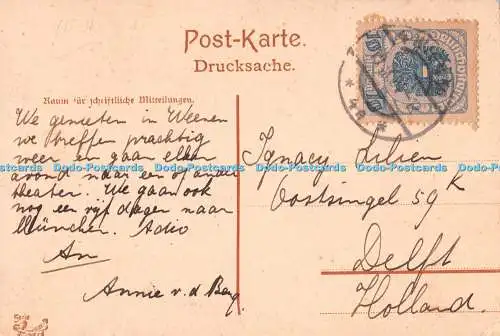 Post-Karte.
Drucksache.
Raum für schriftliche Mitteilungen.
We genieten in Weenen
we treffen prachtig
weer en gaan elken
avond naar een ander
theater. We gaan ook
nog een vijf dagen naar
München. Adio
An
Annie v. d. Berg.
Ignacy Lilien
Oostsingel 59 K
Delft
Holland.
Dodo-Postcards Dodo-Postcards Dodo-Postcards Dodo-Postcards Dodo-Postcards